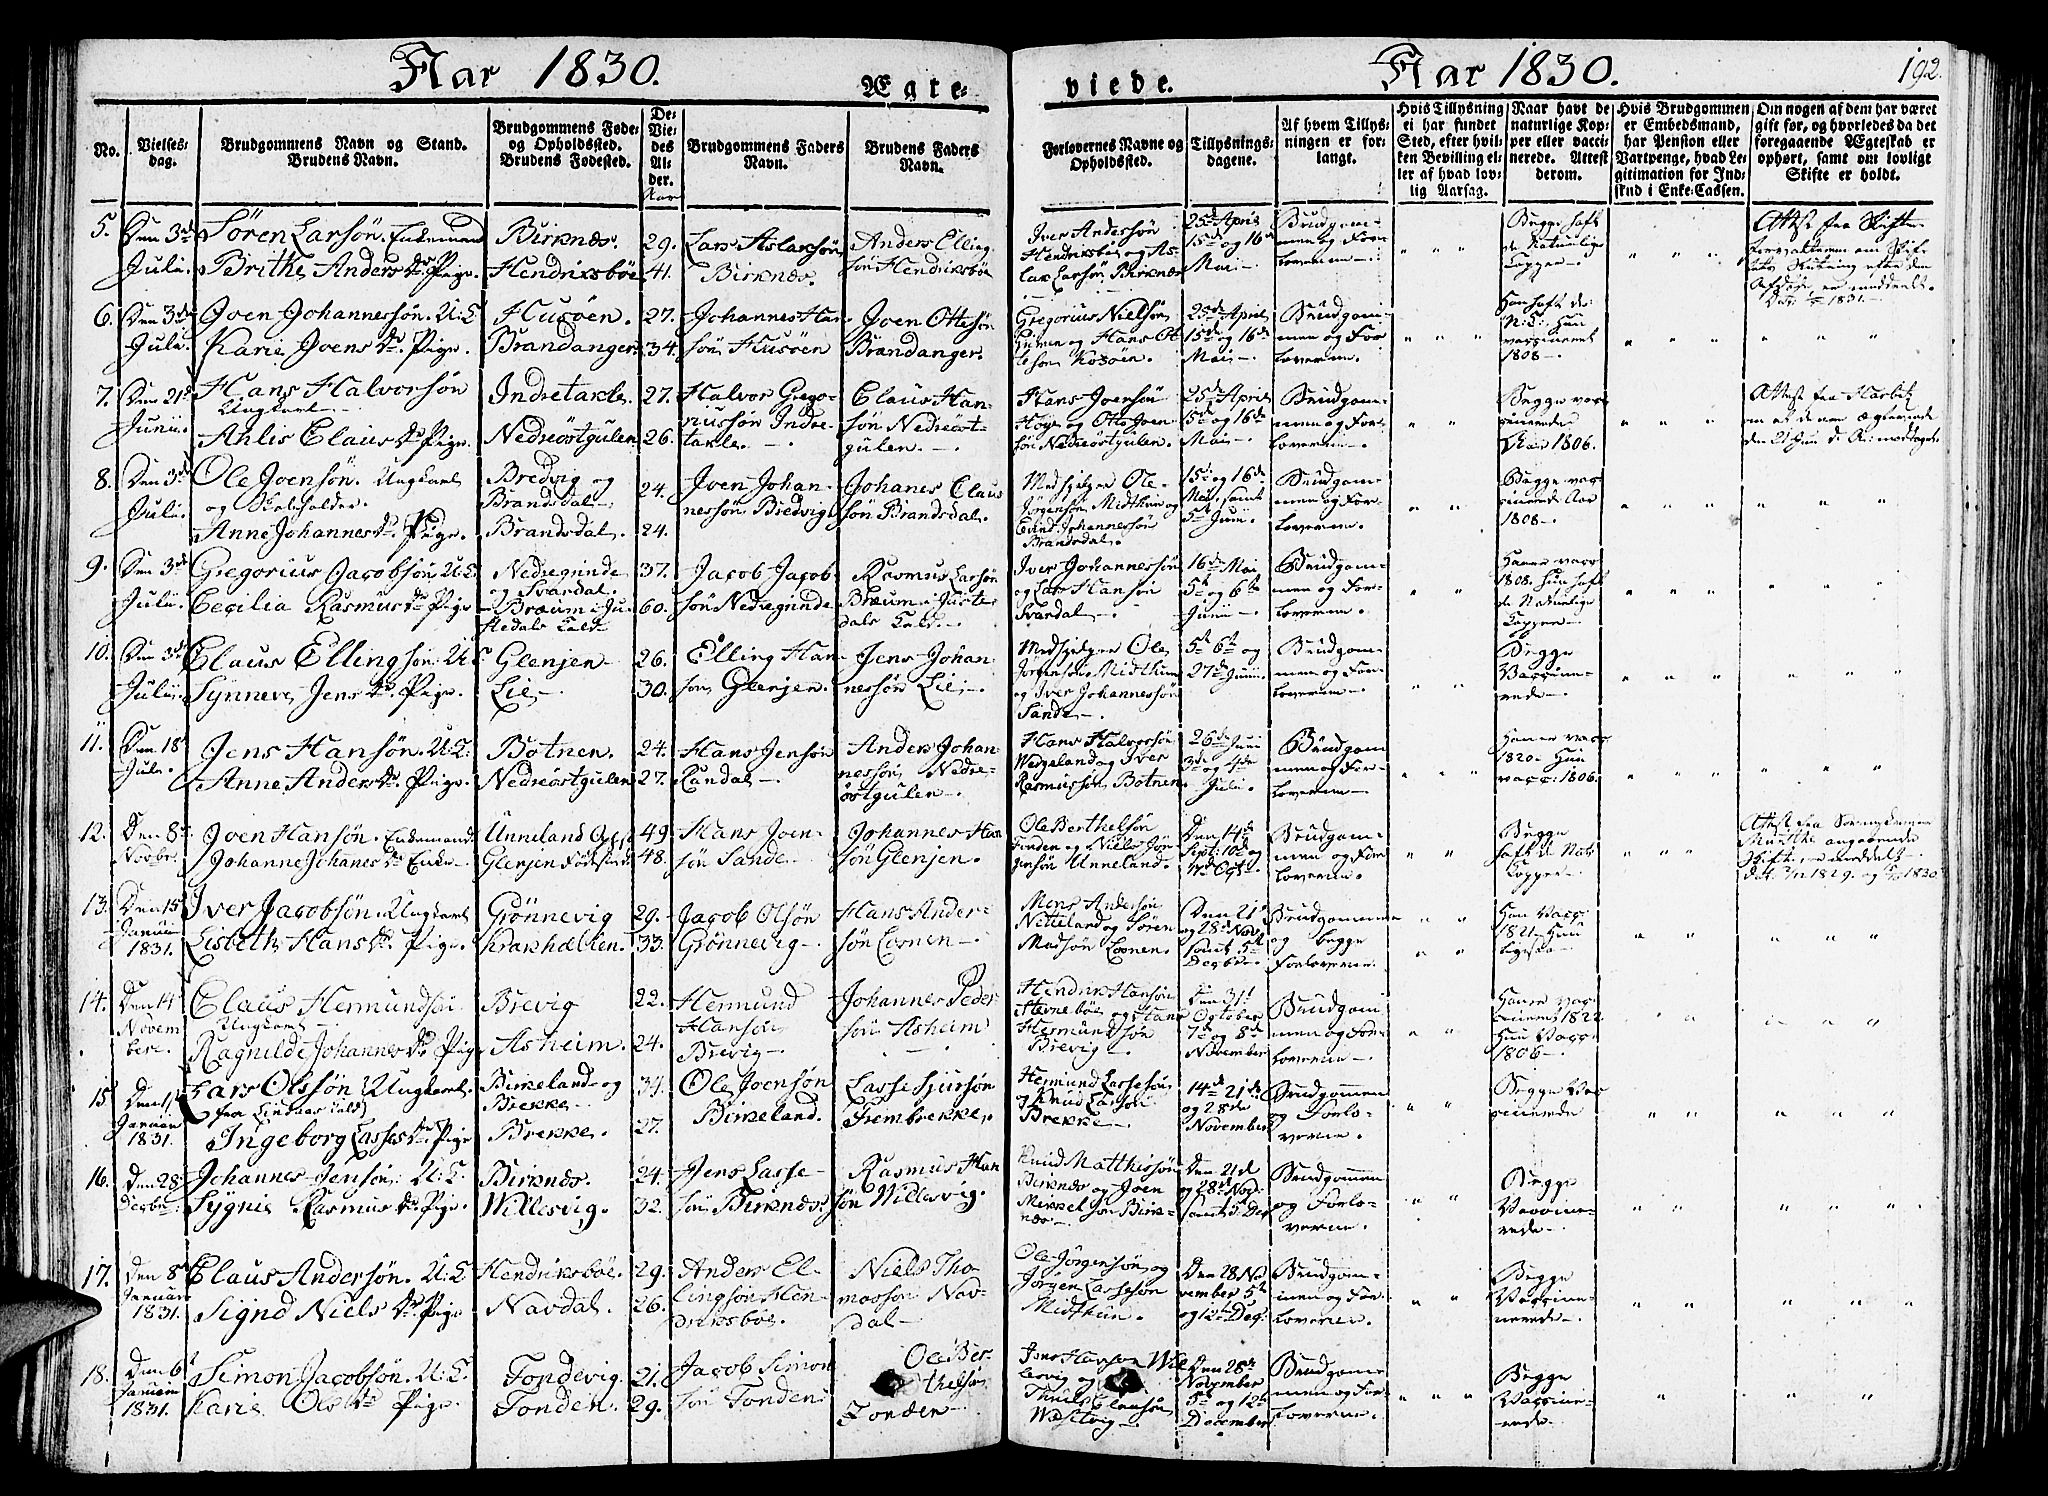 Aar 1830.
Ægte-
viede.
Aar 1830.
192.
No.
Vielses-
dag.
Brudgommens Navn og Stand.
Brudens Navn.
Brudgommens Føde-
og Opholdssted.
Brudens Fødested.
De
Vie-
des
Al-
der.
Aar
Brudgommens Faders
Navn.
Brudens Faders
Navn.
Forlovernes Navne og
Opholdssted.
Tillysnings-
dagene.
Af hvem Tillys-
ningen er for-
langt.
Hvis Tillysning
ei har fundet
Sted, efter hvil-
ken Bevilling el-
ler af hvad lov-
lig Aarsag.
Naar havt de
naturlige Kop-
per eller vacci-
nerede. Attest
derom.
Hvis Brudgommen
er Embedsmand,
har Pension eller
Vartpenge, hvad Le-
gitimation for Ind-
skud i Enke-Cassen.
Om nogen af dem har været
gift før, og hvorledes da det
foregaaende Ægteskab er
ophørt, samt om lovligt
Skifte er holdt.
5. Den 3de
Julii.
Søren Larsøn. Enkemand
Brithe Anders Dr. Pige.
Birknæs.
Hendriksbøe
29.
41.
Lars Aslaksøn
Birknæs.
Anders Elling
søn Hendriksbøe
Iver Andersøn
Hendriksbøe og As-
lak Larsøn Birknæs
25de April
15de og 16de
Mai
Brudgom-
men og For-
loverne.
Begge haft
de Naturlige
Kopper
Attest fra Skifte-
Dat. 1831.
6. Den 3de
Julii.
Joen Johannessøn. U:K
Karie Joens Dr. Pige.
Husøen.
Brandanger
27.
34.
Johannes Han-
søn Husøen
Joen Ottesøn
Brandanger.
Gregorius Nielsøn
og Hans Ot-
tesøn
25de April
15de og 16de
Mai
Brudgom-
men og For-
loverne.
Han haft de
N: K: Hun
vaccineret
1808
7. Den 21de
Junii.
Hans Halvorsøn
Ungkarl
Ahlis Claus Dr. Pige.
Indretakle.
Nedreøstgulen
27.
26.
Halvor Grego-
riussøn Indre-
takle.
Claus Han-
søn Nedreøst-
gulen.
Hans Joensøn
Høye og Otto Joen-
søn Nedreøstgulen.
25de April
15de og 16de
Mai
Brudgom-
men og For-
loverne.
Begge vacc-
cinerede
Aar 1806.
8. Den 3de
Julii.
Ole Joensøn. Ungkarl
og Skoleholder.
Anne Johannes Dr. Pige.
Bredvig og
Brandsdal
Brandsdal.
24.
24.
Joen Johan-
nessøn Bredvig
Johanes Claus
søn Brandsdal.
Medhjelper Ole
Jörgensøn Midthun og
Johannessøn
Brandsdal.
15de og 16de
Mai, samt
5te Junii
Brudgom-
men og For-
loverne.
Begge vac-
cinerede Aar
1808
9. Den 3de
Julii.
Gregorius Jacobsøn U:K.
Cecilia Rasmus Dr. Pige
Nedregrinde
og Svardal.
Bræum i Ju-
stedals Kald
37.
60.
Jacob Jacob
søn Nedregrinde
Rasmus Larsøn
Bræum i Juste-
dals Kald.
Iver Johannessøn
og Lars Hansøn
Svardal
16de Mai
5te og 6te
Junii
Brudgom-
men og For-
loverne.
Hanne vacc
1808. Hun haft
de Naturlige
Kopper
10. Den 3de
Julii.
Claus Ellingsøn: U:K
Synneve Jens Dr. Pige.
Glenjen
Lie
26.
30.
Elling Han
søn Glenjen.
Jens Johan-
nessøn Lie
Medhjelper Ole
Jørgensøn Midthun
og Iver Johannessøn
Sande
5te 6te og
27de Junii
Brudgom-
men og For-
loverne.
Begge
Vaccine-
rede
11. Den 18
Julii.
Jens Hansøn. U:K:
Anne Anders Dr. Pige.
Botnen.
Nedreøstgulen
24.
27.
Hans Jensøn
Rundal
Anders Johan-
nessøn Nedre-
østgulen
Hans Halvorsøn
og Iver
Rasmussøn Botnen.
26de Junii
3de og 4de
Julii
Brudgom-
men og For-
loverne
Han er vacc
1820. Hun
vacc: 1806.
12. Den 8de
Novbr.
Joen Hansøn. Enkemand.
Johanne Johanes Dr. Enke
Unneland
Glenjen
49
48.
Hans Joen-
søn Sande
Johannes Han
søn Glenjen.
Ole Berthelsøn
Tonden og Niels Jør-
gensøn Unneland.
Den 14de
Sept: 10de og
Oct
Brudgom-
men og For-
loverne.
Begge
haft de Nat:
Kopper
Attest fra
Skifte, er meddelt
13. Den 15
Januar
1831.
Iver Jacobsøn. Ungkarl
Lisbeth Hans Dr. Pige.
Grønnevig
Krakhellen.
29.
33.
Jacob Olsøn
Grønnevig
Hans Ander-
søn Losnen
Mons Andersøn
Nitteland og Søren
Madsøn Losnen.
Den 21de
og 28de Nov
samt 5te
Decbr
Brudgommen
og begge
Forloverne.
Han Vacc:
1821. Hun
ligesaa
14. Den 14
Novem
ber.
Claus Hermundsøn
Ungkarl
Ragnilde Johannes Dr. Pige
Brevig
Asheim.
22.
24.
Hermund
Hansøn
Brevig
Johannes Peder
søn Asheim
Hendrik Hansøn
og Hans
Hermundsøn
Brevig
Den 31te
October
7de og 8de
November
Brudgom
men og For-
loverne
Han er vac-
cineret 1822
Hun Vacc:
1806
15. Den 1
Januar
1831.
Lars Olssøn Ungkarl
(fra Lindaas Kald)
Ingeborg Lasses Dr. Pige
Birkeland og
Brekke
Brekke.
34.
27.
Ole Joensøn
Birkeland.
Lasse Sjursøn
Frembrekke.
Hermund Lassesøn
og Knud Larsøn
Brekke
14de 21de
og 28de
November
Brudgommen
og Forlo-
verne.
Begge Vac
cinerede
16. Den 28
Decbr.
Johannes Jensøn. U:K.
Sygnie Rasmus Dr. Pige.
Birknæs.
Willesvig.
24.
32.
Jens Lasse
søn Birknæs.
Rasmus Han
søn Willesvig.
Knud Matthissøn
Birknæs og Joen
Mikkelsøn Birk-
næs
Den 21de
og 28de Nov:
samt 5 Dec
Brudgommen
og Forlo-
verne.
Begge
Vaccine-
rede
17. Den 8
Januar
1831.
Claus Andersøn. U:K
Signd Niels Dr. Pige
Hendriksbøe.
Navdal.
29.
26.
Anders El-
lingsøn Hen
driksbøe.
Niels Tho
massøn Nav-
dal
Ole Jørgensøn og
Jørgen Lassesøn
Midthun.
Den 28 No
vember 5te
og 12te Dec:
Brudgom-
men og For-
loverne.
Begge
Vaccine-
nerede
18. Den 6
Januar
1831.
Simon Jacobsøn. U:K.
Karie Ols Dr. Pige.
Tondevig.
Tonden.
21.
29.
Jacob Simon
søn Tonden
Ole Ber
thelsøn
Tonden
Jens Hansøn Wil
lesvig og
Westvig
Den 28de
November
5te og 12te
December
Brudgom-
men og For-
loverne.
Begge
Vaccine-
rede